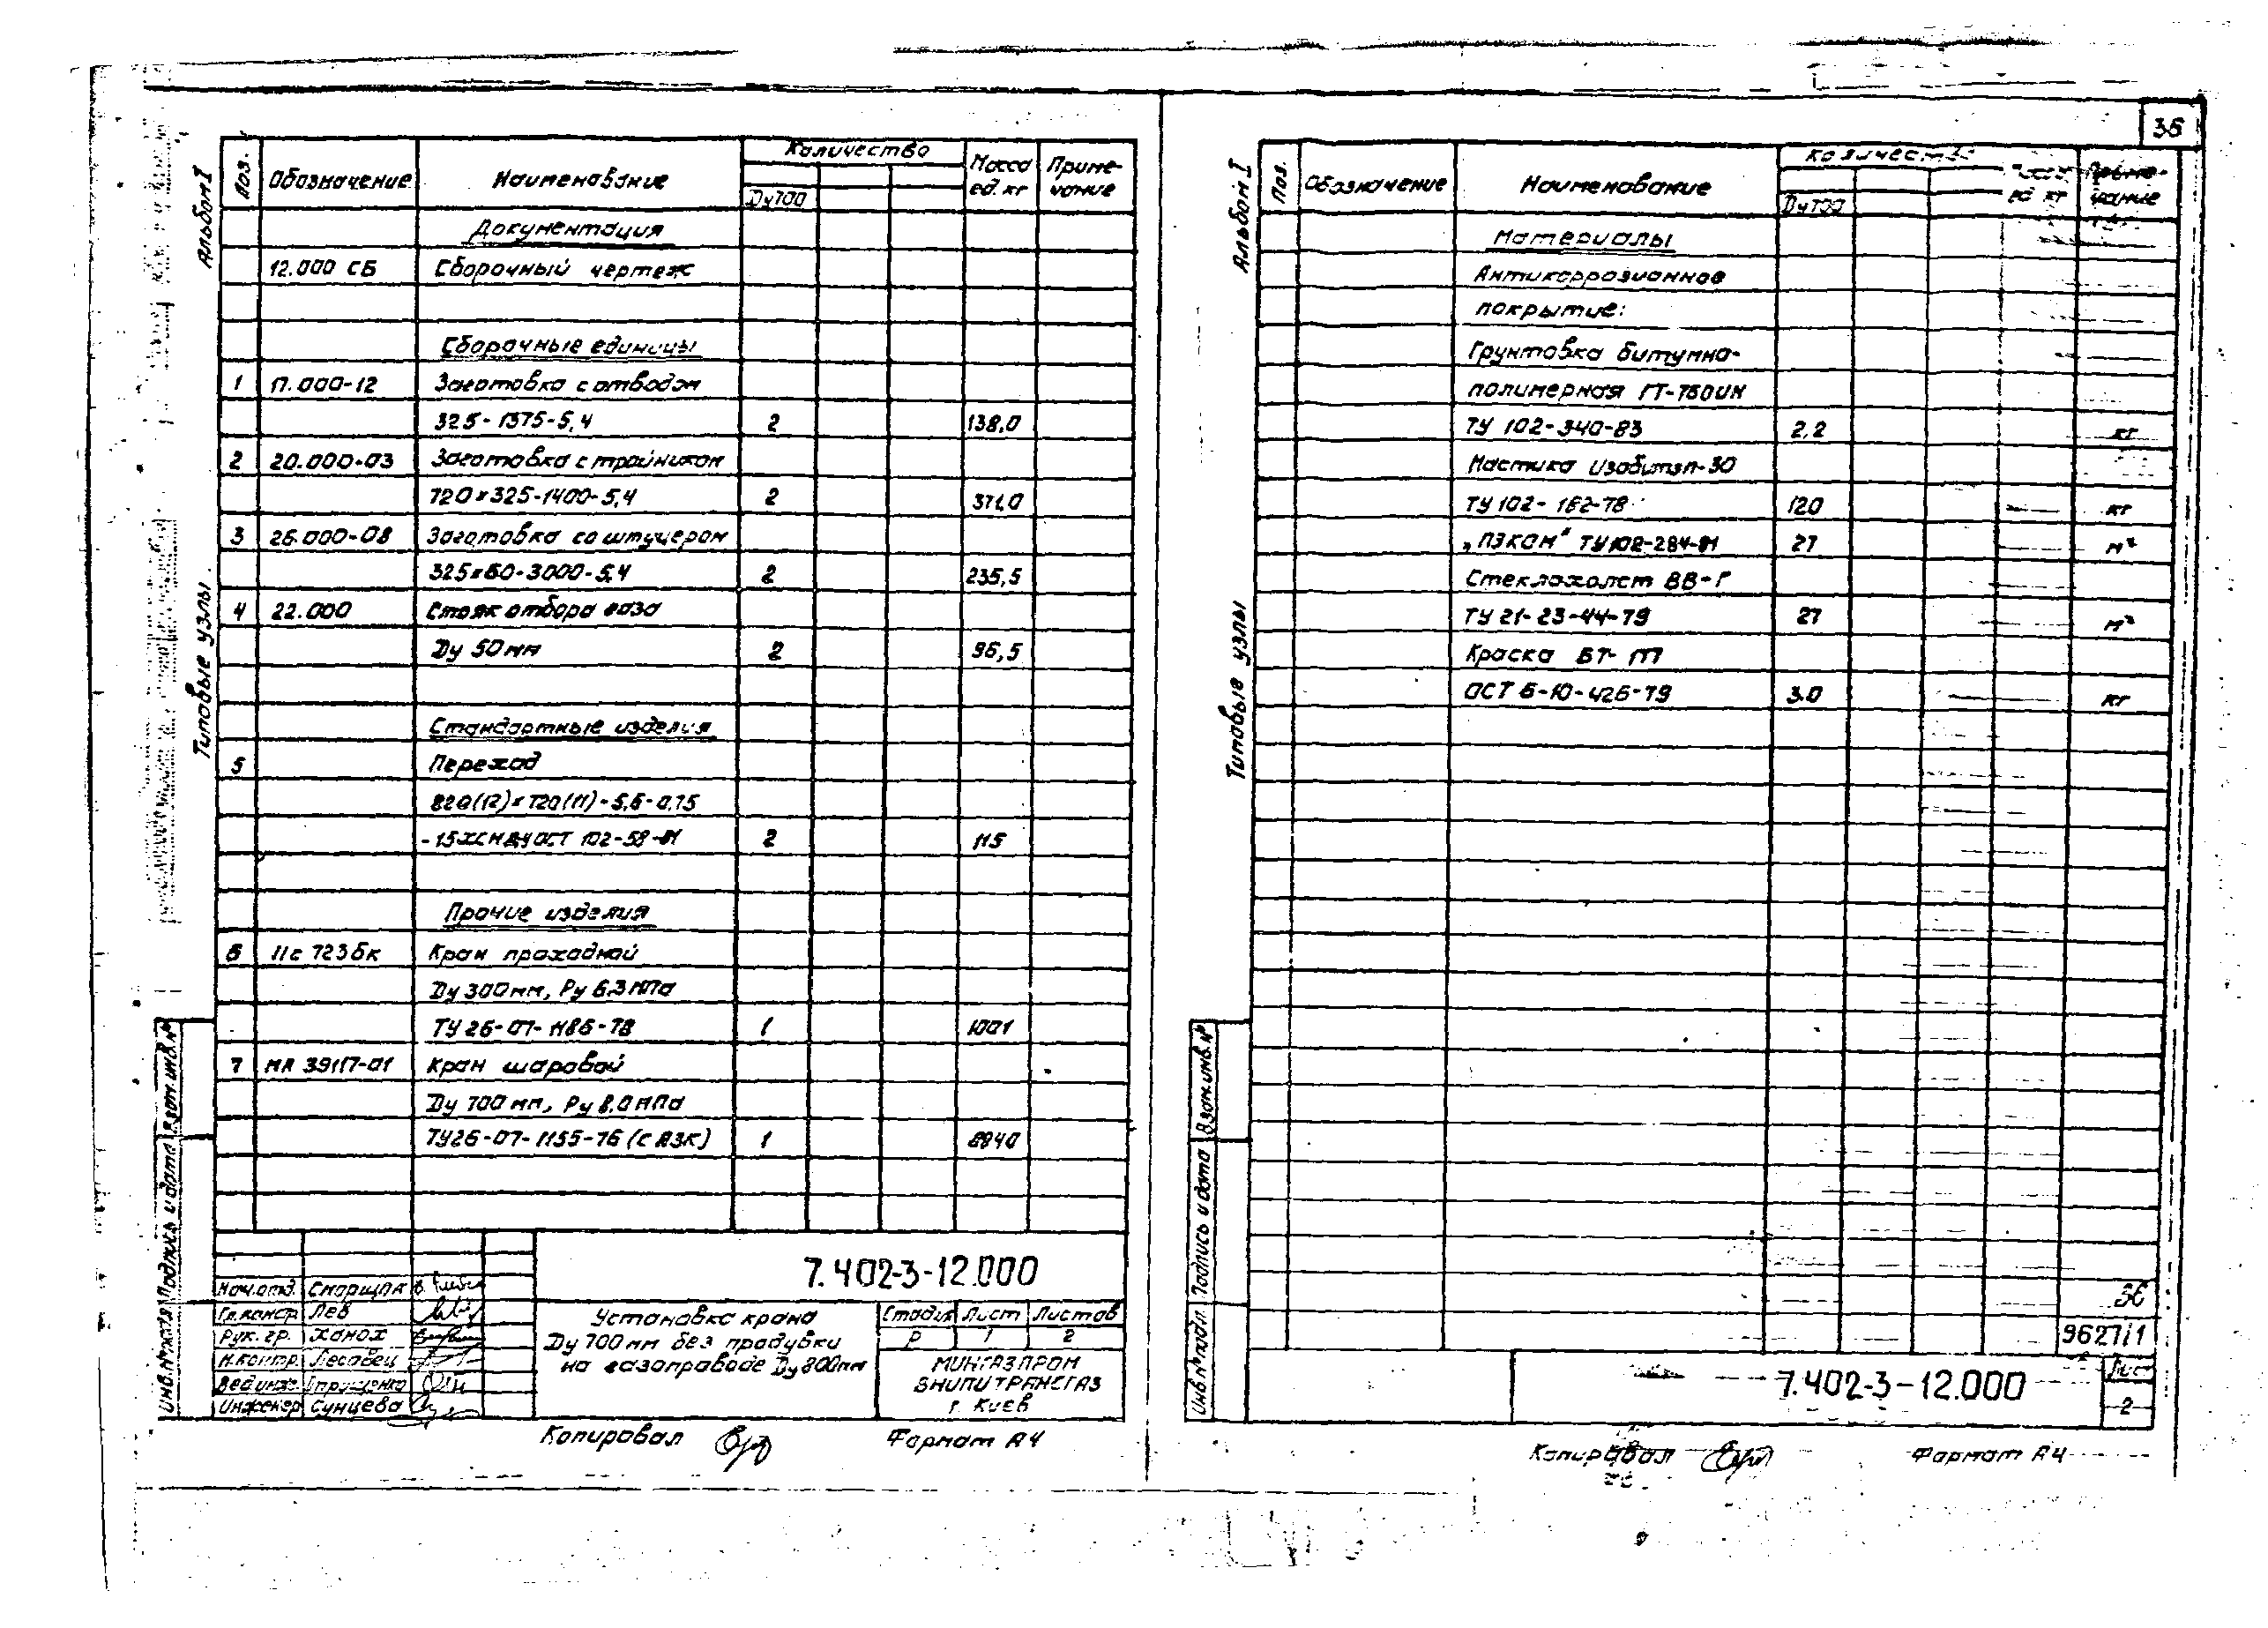 36
Альбом I
Типовые узлы
Поз. Обозначение Наименование Количество Масса ед. кг Приме-чание
Ду700
Документация
12.000 СБ Сборочный чертеж
Сборочные единицы
1 17.000-12 Заготовка с отводом
325-1375-5,4 2 138,0
2 20.000-03 Заготовка с тройником
720×325-1400-5,4 2 371,0
3 26.000-08 Заготовка со штуцером
325×60-3000-5,4 2 235,5
4 22.000 Стояк отбора газа
Ду 50мм 2 96,5
Стандартные изделия
5 Переход
820(12)×720(11)-5,6-0,75
-15ХСНД-У ОСТ 102-58-81 2 115
Прочие изделия
6 11с 723бк Кран проходной
Ду 300мм, Ру 6.3МПа
ТУ 26-07-1186-78 1 1001
7 МА 39117-01 Кран шаровой
Ду 700мм, Ру 8.0МПа
ТУ26-07-1155-76 1 6940
Инв.№подл. Подпись и дата Взам.инв.№
7.402-3-12.000
Нач.отд.
Гл.констр Лев
Рук. гр. Ханох
Н.контр. Лесовец
Вед.инж.
Инженер Сунцева
Установка крана
Ду 700мм без продувки
на газопроводе Ду 800мм
Стадия Лист Листов
Р 1 2
МИНГАЗПРОМ
ВНИПИТРАНСГАЗ
г. Киев
Копировал Формат А4
Альбом I
Типовые узлы
Поз. Обозначение Наименование Количество Масса ед. кг Приме-чание
Ду700
Материалы
Антикоррозионное
покрытие:
Грунтовка битумно-
полимерная ГТ-760ИН
ТУ 102-340-83 2,2 кг
Мастика Изобитэп-30
ТУ 102-182-78 120 кг
„ПЭКОМ" ТУ102-284-81 27 м²
Стеклохолст ВВ-Г
ТУ 21-23-44-79 27 м²
Краска БТ-177
ОСТ 6-10-426-79 3.0 кг
Инв.№подл. Подпись и дата Взам.инв.№
36
9627/1
7.402-3-12.000
Лист
2
Копировал Формат А4